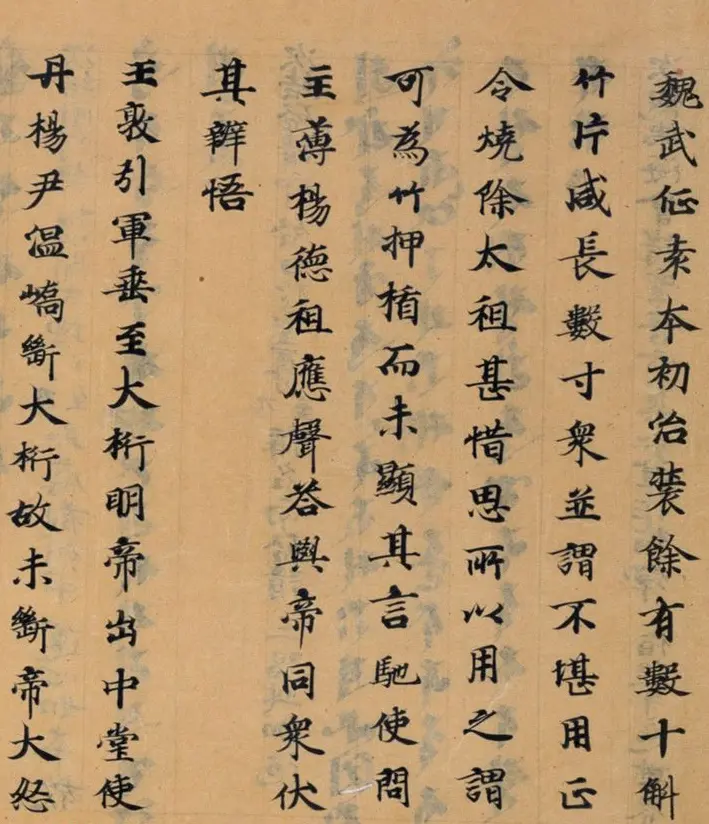 魏武征袁本初治裝餘有數十斛
竹片咸長數寸衆並謂不堪用正
令燒除太祖甚惜思所以用之謂
可為竹押楯而未顯其言馳使問
主薄楊德祖應聲答與帝同衆伏
其辤悟
王敦引軍垂至大桁明帝出中堂使
丹楊尹温嶠斷大桁故未斷帝大怒